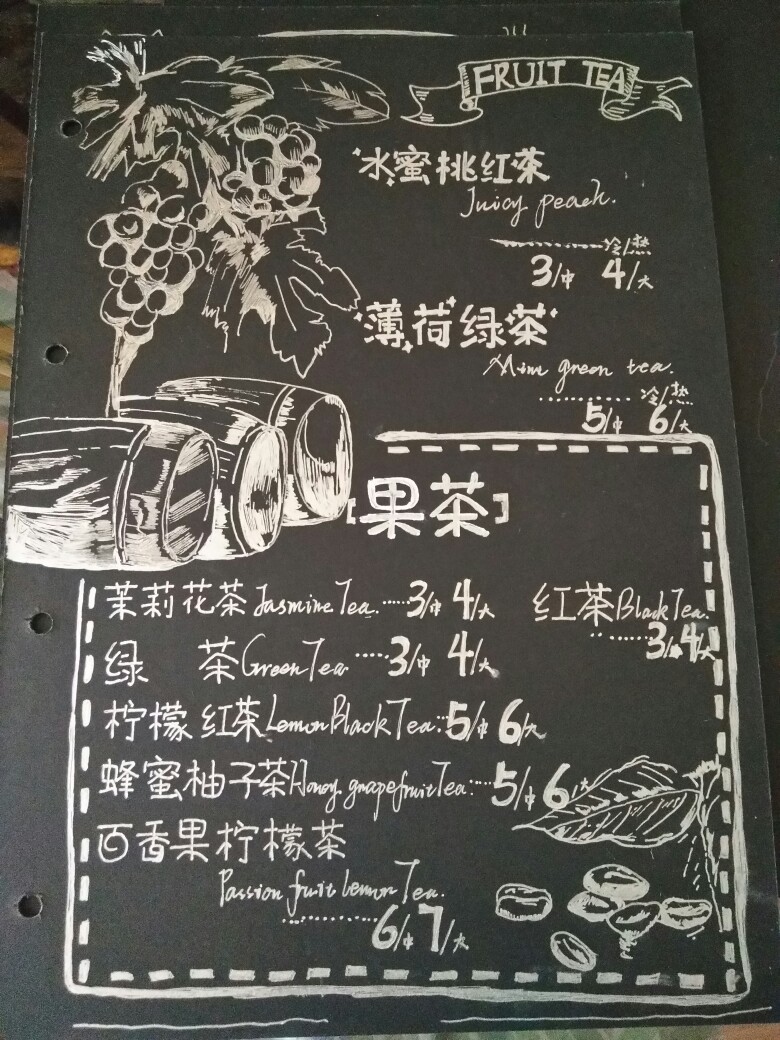 FRUIT TEA
水蜜桃红茶
Juicy peach.
冷/热
3/中 4/大
薄荷绿茶
Mint green tea.
冷/热
5/中 6/大
[果茶]
茉莉花茶 Jasmine Tea......3/中 4/大
红茶 Black Tea.
......3/中 4/大
绿 茶 Green Tea.....3/中 4/大
柠檬红茶 Lemon Black Tea...5/中 6/大
蜂蜜柚子茶 Honey grapefruit Tea....5/中 6/大
百香果柠檬茶
Passion fruit lemon Tea.
............6/中 7/大